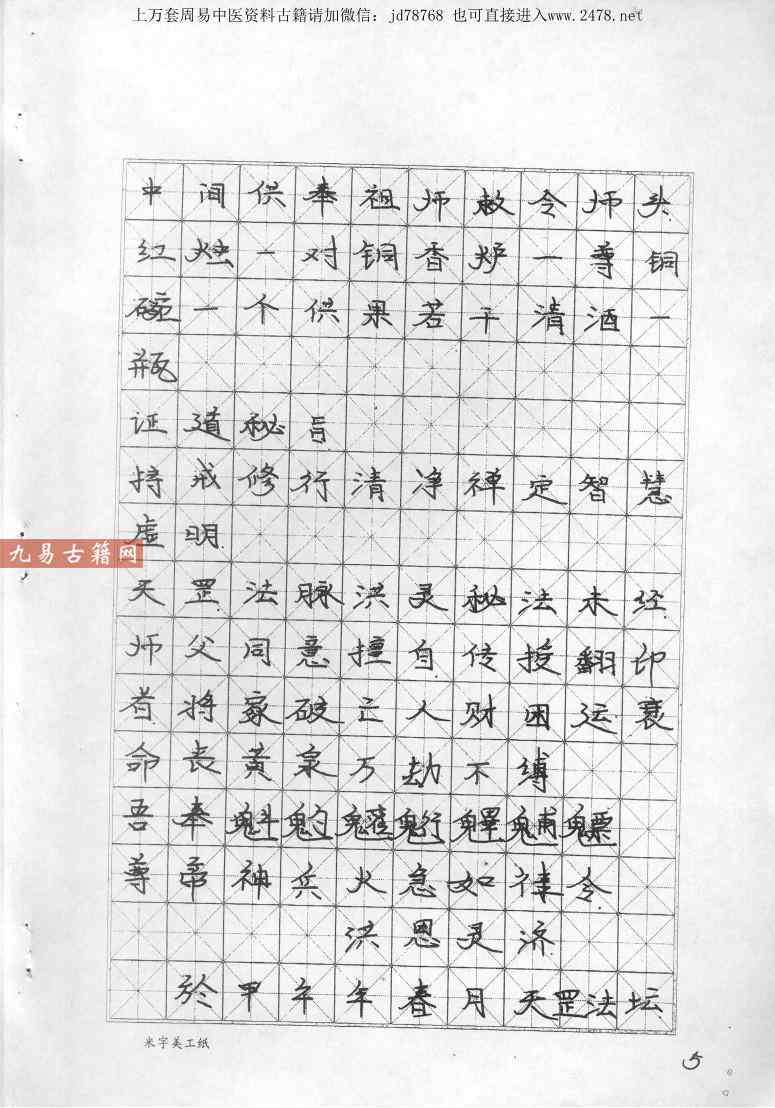 上万套周易中医资料古籍请加微信：jd78768 也可直接进入www.2478.net
中间供奉祖师敕令师头
红烛一对铜香炉一尊铜
碗一个供果若干清酒一
瓶
证道秘旨
持戒修行清净禅定智慧
虚明
九易古籍网
天罡法脉洪灵秘法未经
师父同意擅自传授翻印
者将家破亡人财困运衰
命丧黄泉万劫不缚
吾奉魁魓䰢魒
尊帝神兵火急如律令
洪恩灵济
於甲午年春月天罡法坛
米字美工纸
5